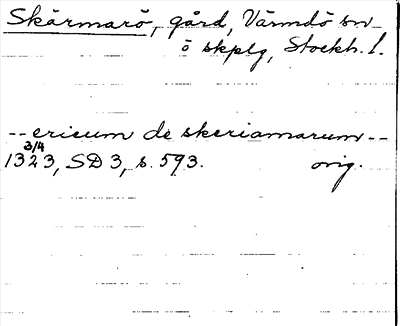 Skärmarö, gård, Värmdö sn
ö skplg, Stockh. l.
-- ericum de skeriamarum --
3/4
1323, SD 3, s. 593. orig.